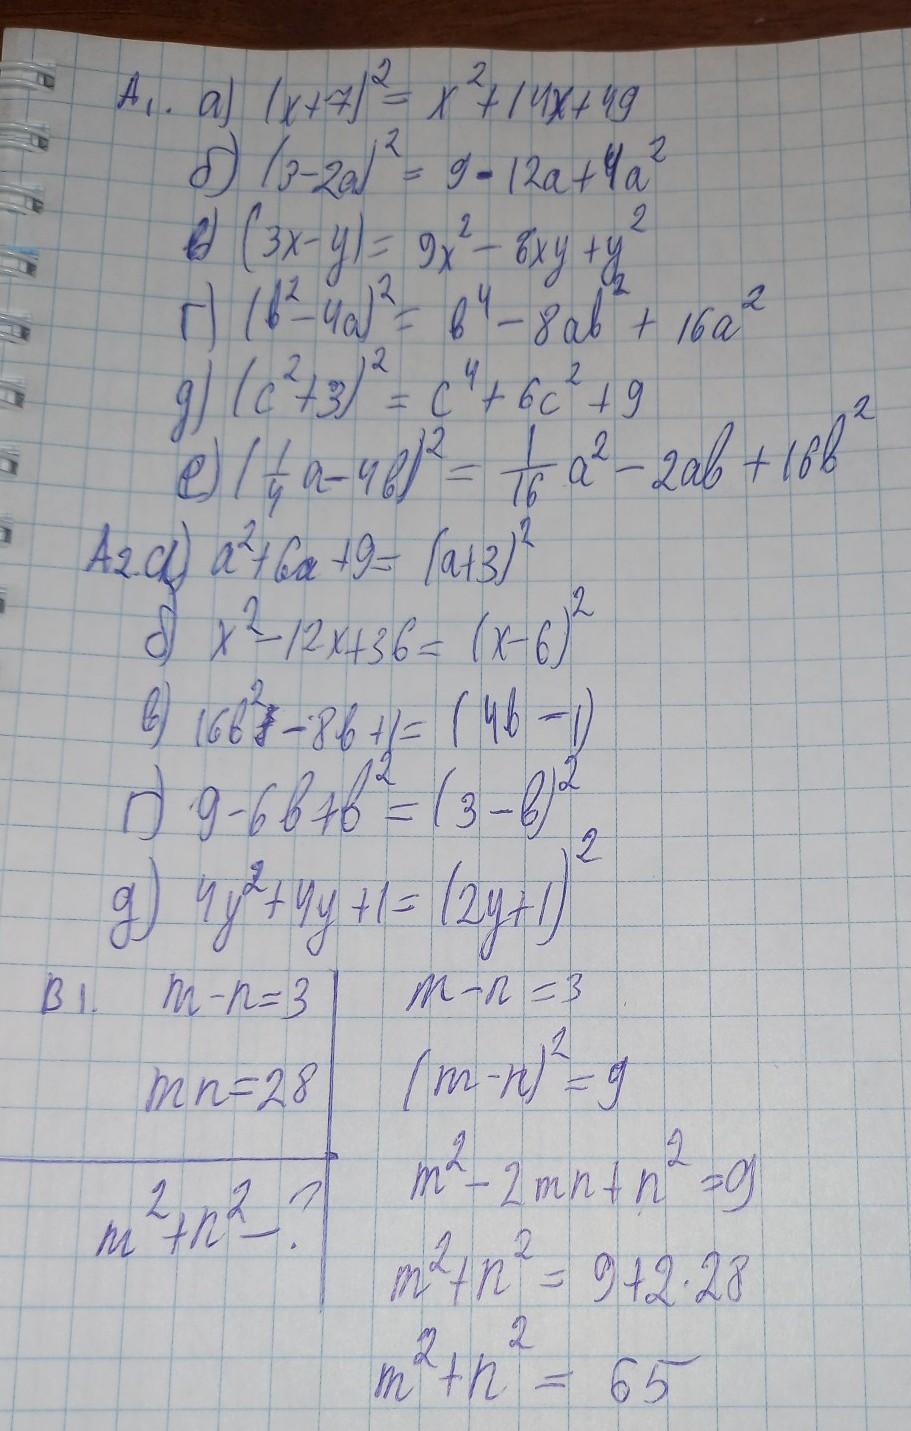 А1. а) (x+7)² = x²+14x+49
б) (3-2a)² = 9-12a+4a²
в) (3x-y) = 9x²-6xy+y²
г) (b²-4a)² = b⁴-8ab²+16a²
д) (c²+3)² = c⁴+6c²+9
е) (1/4a-4b)² = 1/16a²-2ab+16b²
А2. а) a²+6a+9= (a+3)²
б) x²-12x+36= (x-6)²
в) 16b²-8b+1= (4b-1)
г) 9-6b+b² = (3-b)²
д) 4y²+4y+1= (2y+1)²
В1. m-n=3
mn=28
m²+n²-?
m-n=3
(m-n)² = 9
m²-2mn+n² =9
m²+n² = 9+2·28
m²+n² = 65